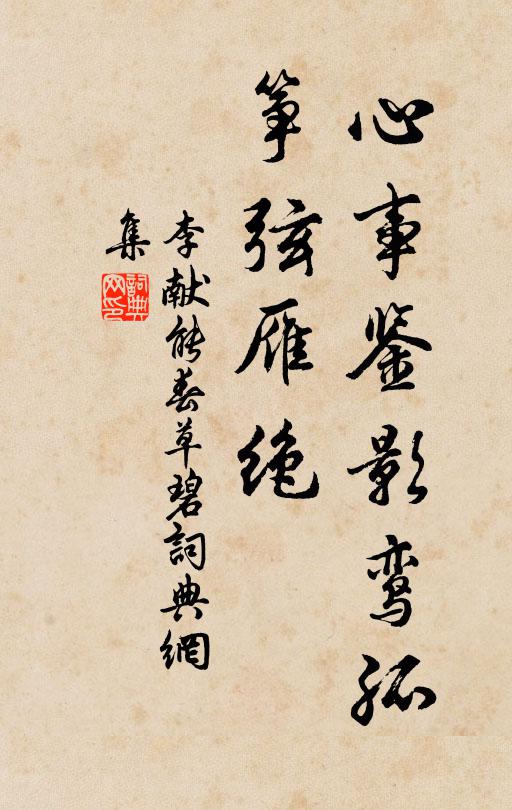 心事鉴影鸾孤
筝弦雁绝
李献能春草碧詞典網
集
詞典网印